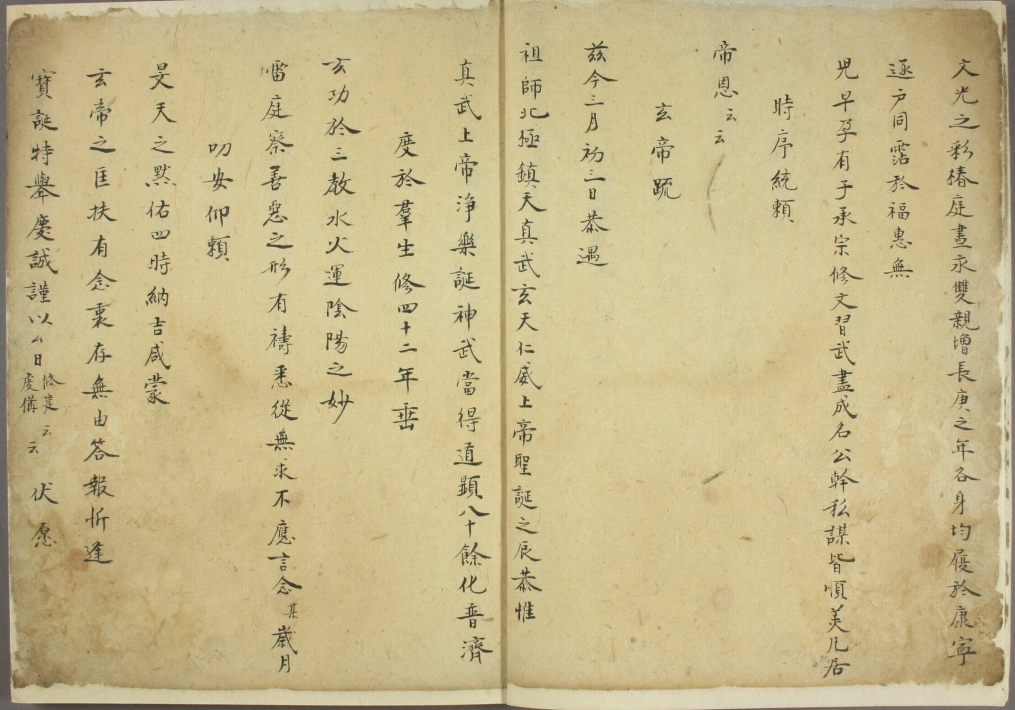 文光之彩椿庭晝永雙親增長庚之年各身均履於康寧
逐户同霑於福惠無
児早孕有子承宗修文習武盡成名公幹私謀皆順美凡居
時序統賴
帝恩云云
玄帝疏
兹今三月初三日恭遇
祖師北極鎮天真武玄天仁威上帝聖誕之辰恭惟
真武上帝淨樂誕神武當得道顯八十餘化普濟
度於羣生修四十二年𡸁
玄功於三教水火運陰陽之妙
雷庭察善惡之形有禱悉從無求不應言念某歲月
叨安仰賴
旻天之黙佑四時納吉咸蒙
玄帝之匡扶有念裏存無由答報忻逢
寳誕特舉慶誠謹以厶日修建虔備云云伏愿